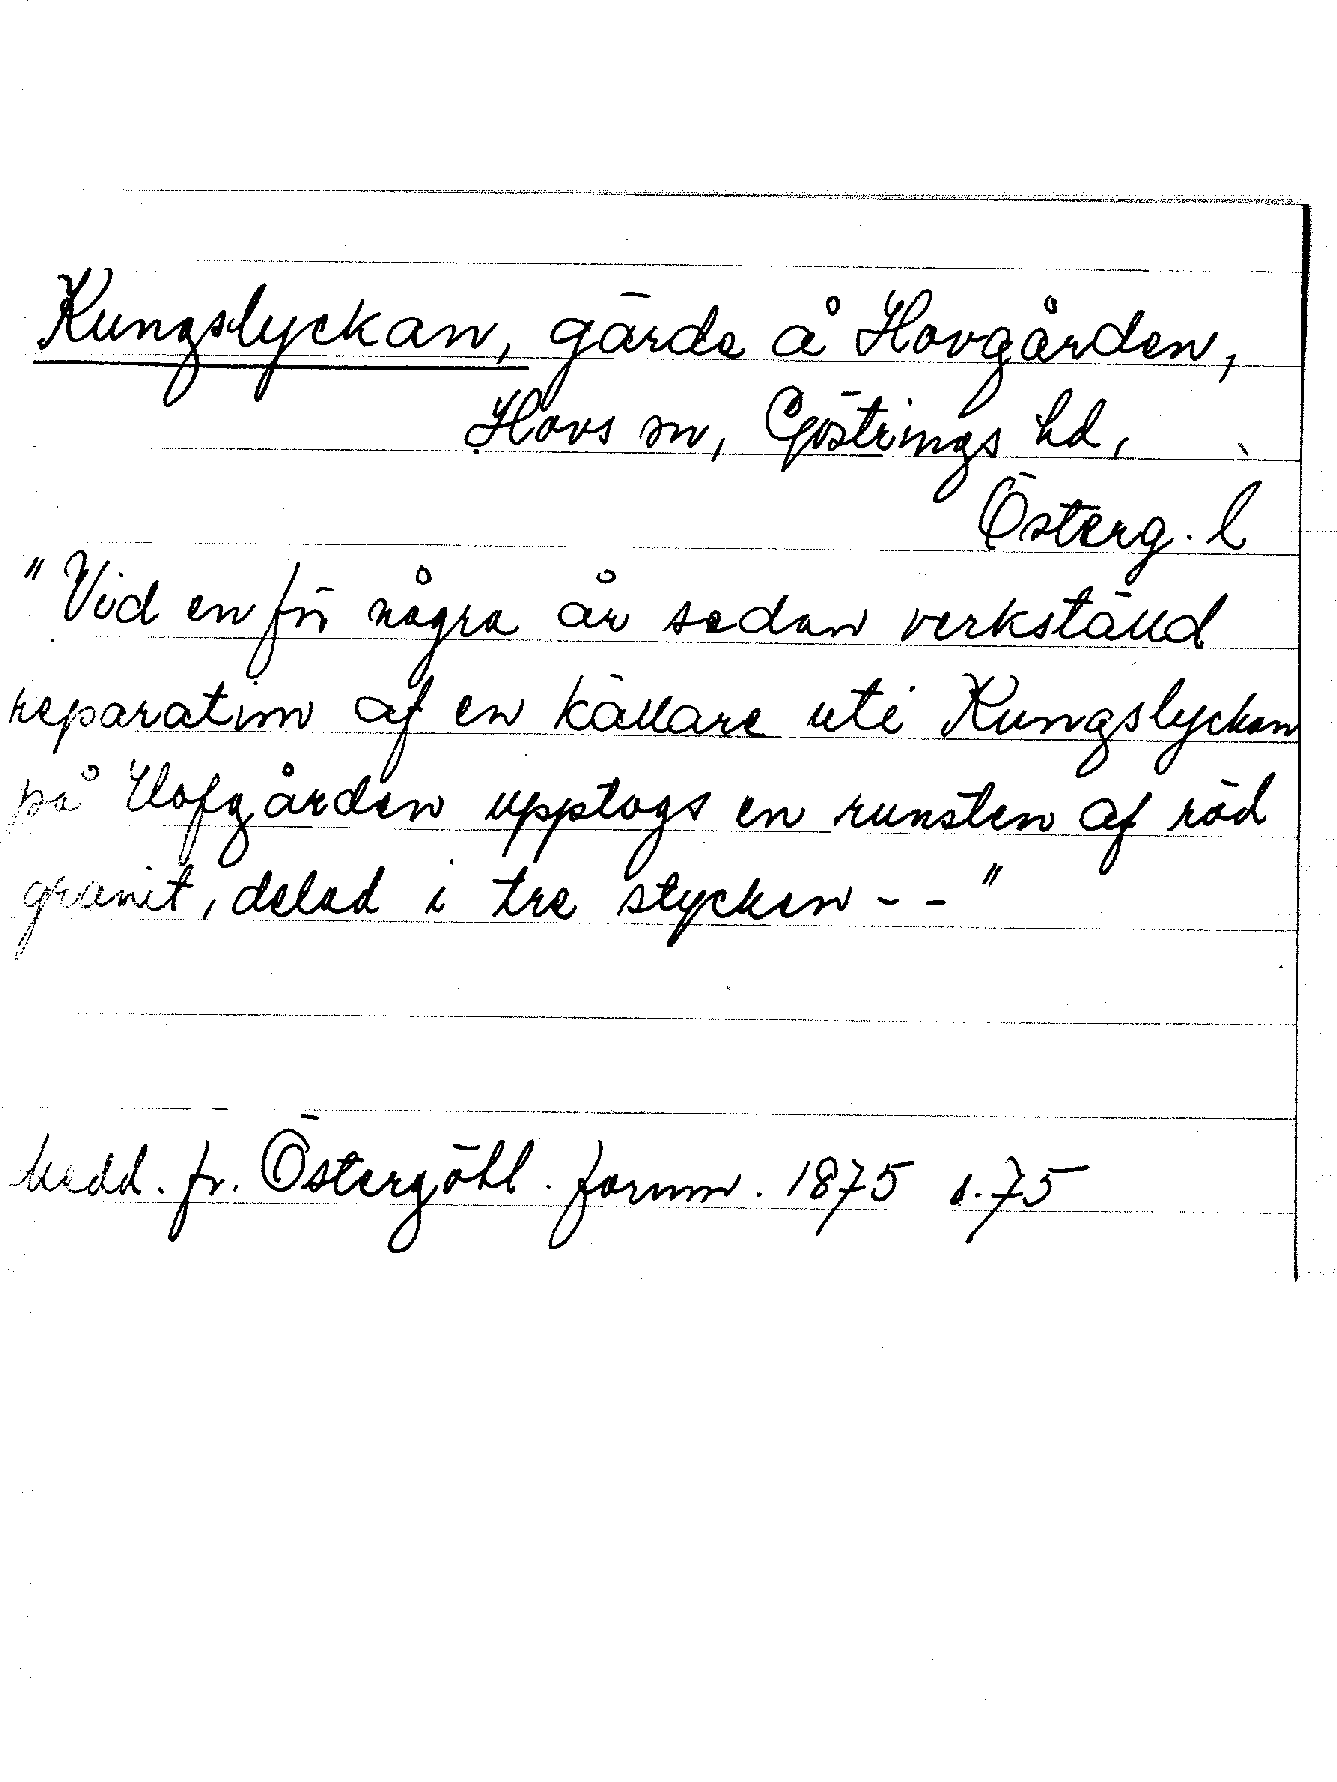 Kungslyckan, gärde å Hovgården,
Hovs sn, Göstrings hd,
Österg. l
"Vid en för några år sedan verkställd
reparation af en källare uti Kungslyckan
på Hofgården upptogs en runsten af röd
granit, delad i tre stycken - - "
Medd. fr. Östergötl. fornm. 1875 s. 75